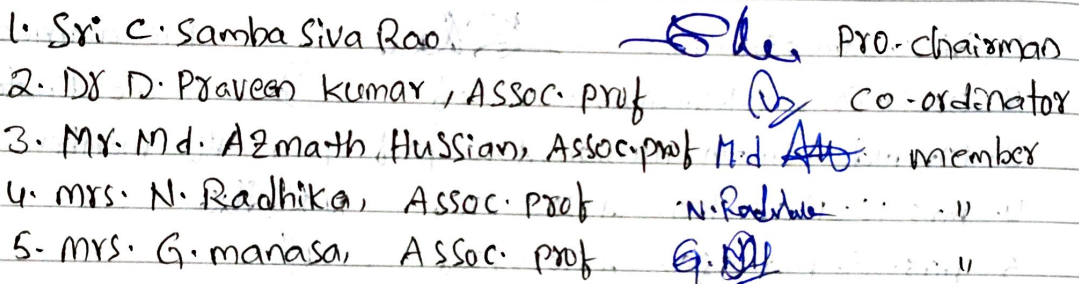 1. Sri C. Samba Siva Rao. Pro-Chairman
2. Dr D. Praveen Kumar, Assoc. prof Co-ordinator
3. Mr. Md. Azmath Hussian, Assoc.prof M.d member
4. Mrs. N. Radhika, Assoc. prof N. Radhika "
5- Mrs. G. manasa, Assoc. prof G. "